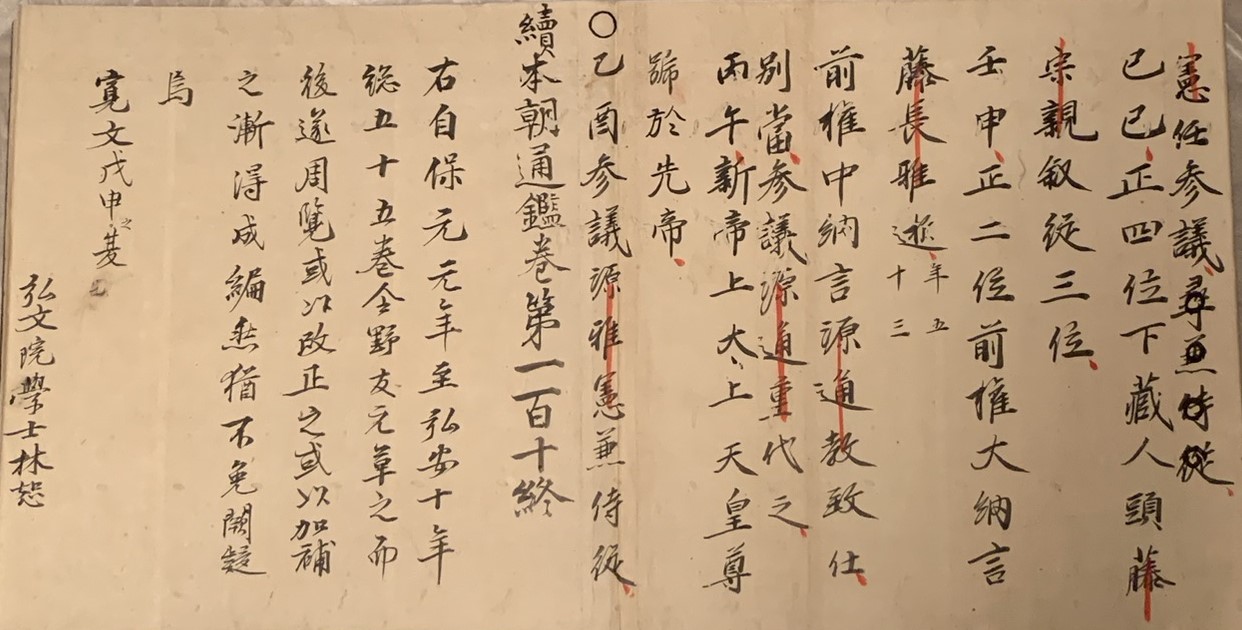 憲任参議尋兼侍從
己巳正四位下藏人頭藤
宗親叙從三位
壬申正二位前權大納言
藤長雅逝年五十三
前權中納言源通教致仕
別當参議源通重代之
丙午新帝上太上天皇尊
號於先帝
○乙酉参議源雅憲兼侍從
續本朝通鑑卷第一百十終
右自保元元年至弘安十年
總五十五卷仝野友元草之而
後遂周覽或以改正之或以加補
之漸得成編然猶不免闕疑
焉
寛文戊申之夏
弘文院學士林恕